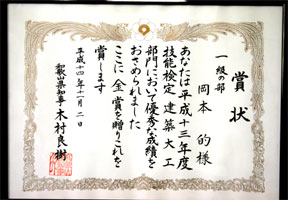 賞状
一級の部
岡本 的様
あなたは平成十三年度
技能検定建築大工
部門において優秀な成績を
おさめられました
ここに金賞を贈りこれを
賞します
平成十四年十一月二日
和歌山県知事 木村良樹